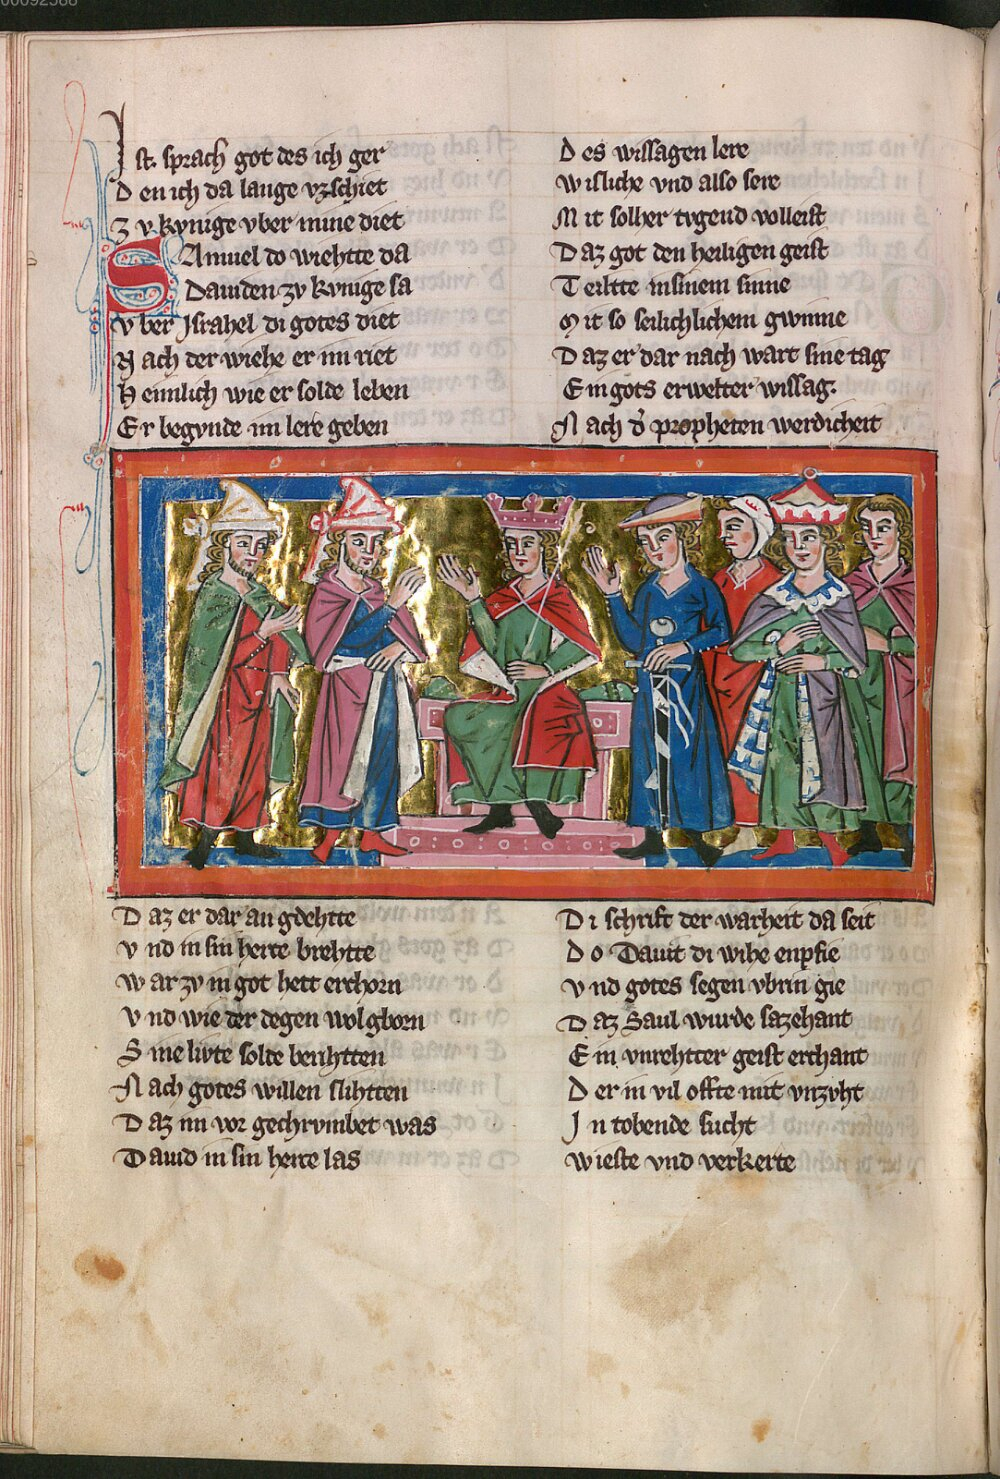 00092588
Ist sprach got des ich ger
Den ich da lange vzschiet
Zv kvnige vber mine diet
SAmuel do wiehtte da
Dauiden zv kvnige sa
Vber Jsrahel di gotes diet
Nach der wiehe er im riet
Heimlich wie er solde leben
Er begvnde im lere geben
Daz er dar an gdehtte
Vnd in sin hertte brehtte
Warzv in got hett erchorn
Vnd wie der degen wolgborn
Sine livte solte berihtten
Nach gotes willen slihtten
Daz im vor gechrvmbet was
Dauid in sin hertte las
Des wissagen lere
Wisliche vnd also sere
Mit solher tvgend volleist
Daz got den heiligen geist
Teiltte in sinem sinne
Mit so seilichlichem gwinne
Daz er dar nach wart sine tag
Ein gots erwelter wissag.
Nach d' propheten werdicheit
Di schrift der warheit da seit
Do Dauit di wihe enpfie
Vnd gotes segen vbrin gie
Daz Saul wurde sazehant
Ein vnrehtter geist erchant
Der in vil offte mit vnzvht
Jn tobende sucht
Wieste vnd verkerte